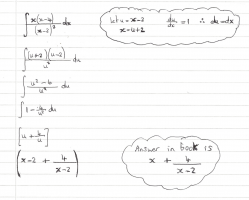 ∫ x(x-4)/(x-2)² dx
let u = x-2  du/dx = 1 ∴ du = dx
x = u+2
∫ (u+2)(u-2)/u² du
∫ u²-4/u² du
∫ 1 - 4/u² du
[u + 4/u]
(x-2 + 4/x-2)
Answer in book is
x + 4/x-2